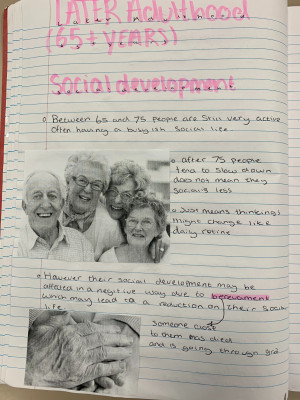 LATER Adulthood
(65+ YEARS)
Social development
Between 65 and 75 people are still very active
often having a busyish social life
after 75 people
tend to slow down
does not mean they
socials less
Just means things
might change like
daily rotine
However their social development may be
affected in a negitive way due to bereavement
which may lead to a reduction on their social
life.
Someone close
to them has died
and is going through